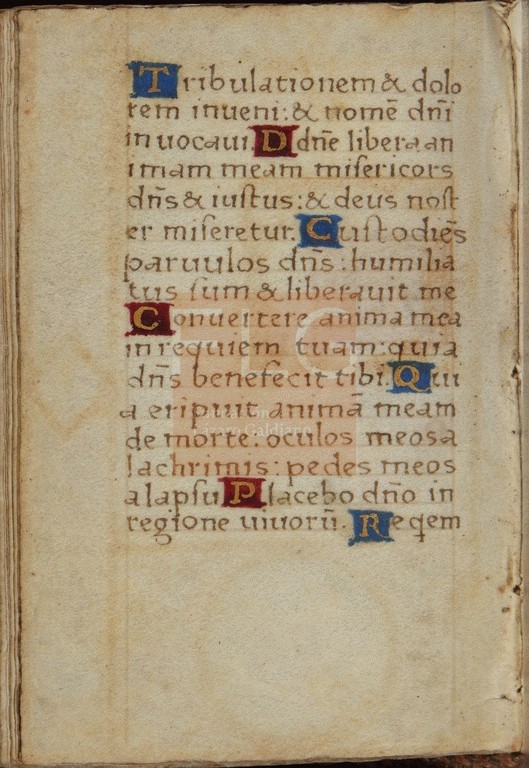 Tribulationem & dolo
rem inueni: & nomē dn̄i
inuocaui. D dn̄e libera an
imam meam misericors
dn̄s & iustus: & deus nost
er miseretur. Custodiēs
paruulos dn̄s: humilia
tus sum & liberauit me
Conuertere anima mea
in requiem tuam: quia
dn̄s benefecit tibi. Qui
a eripuit animā meam
de morte: oculos meos a
lachrimis: pedes meos
a lapsu Placebo dn̄o in
regione uiuorū. Reqem
Lázaro Galdiano